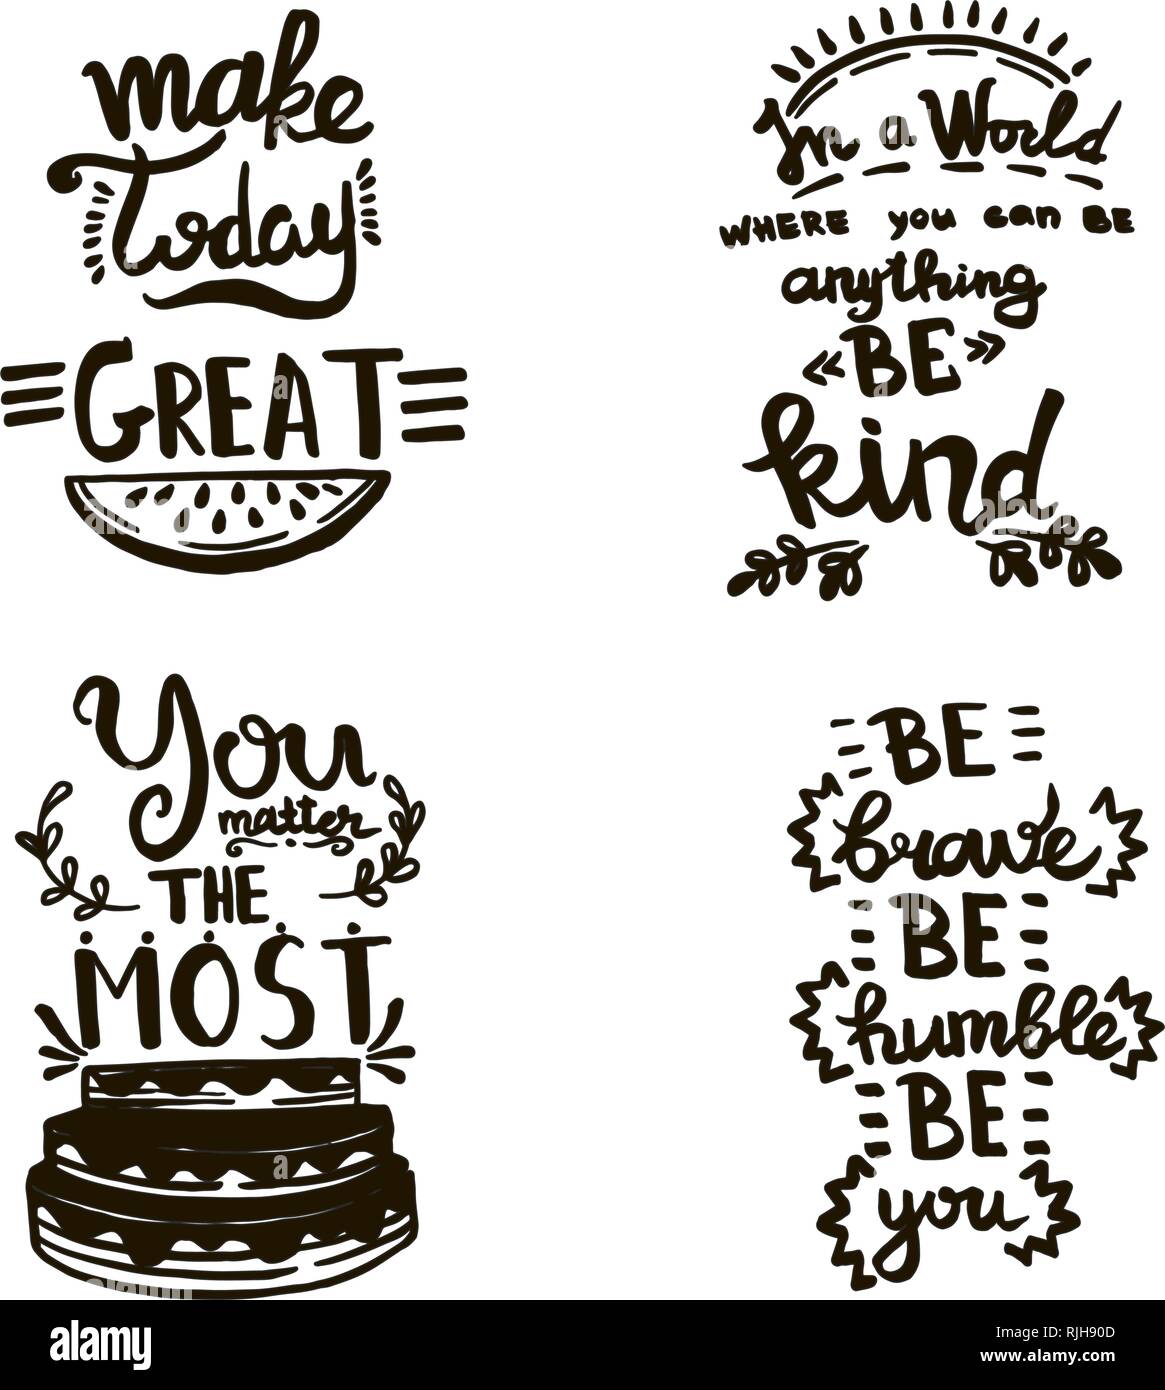 make
Today
GREAT
In a World
WHERE you can BE
anything
«BE»
kind
You
matter
THE
MOST
BE
brave
BE
humble
BE
you
alamy
a
alamy
Image ID: RJH90D
www.alamy.com